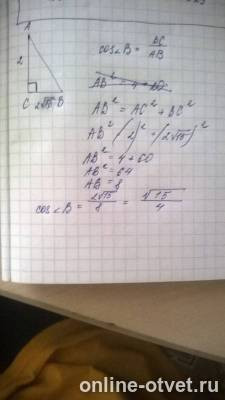 A
2
C 2√15 B
cos∠B = BC/AB
AB² = 4 + 60
AB² = AC² + BC²
AB² (2)² = (2√15)²
AB² = 4 + 60
AB² = 64
AB = 8
cos∠B = 2√15/8 = √15/4
online-otvet.ru